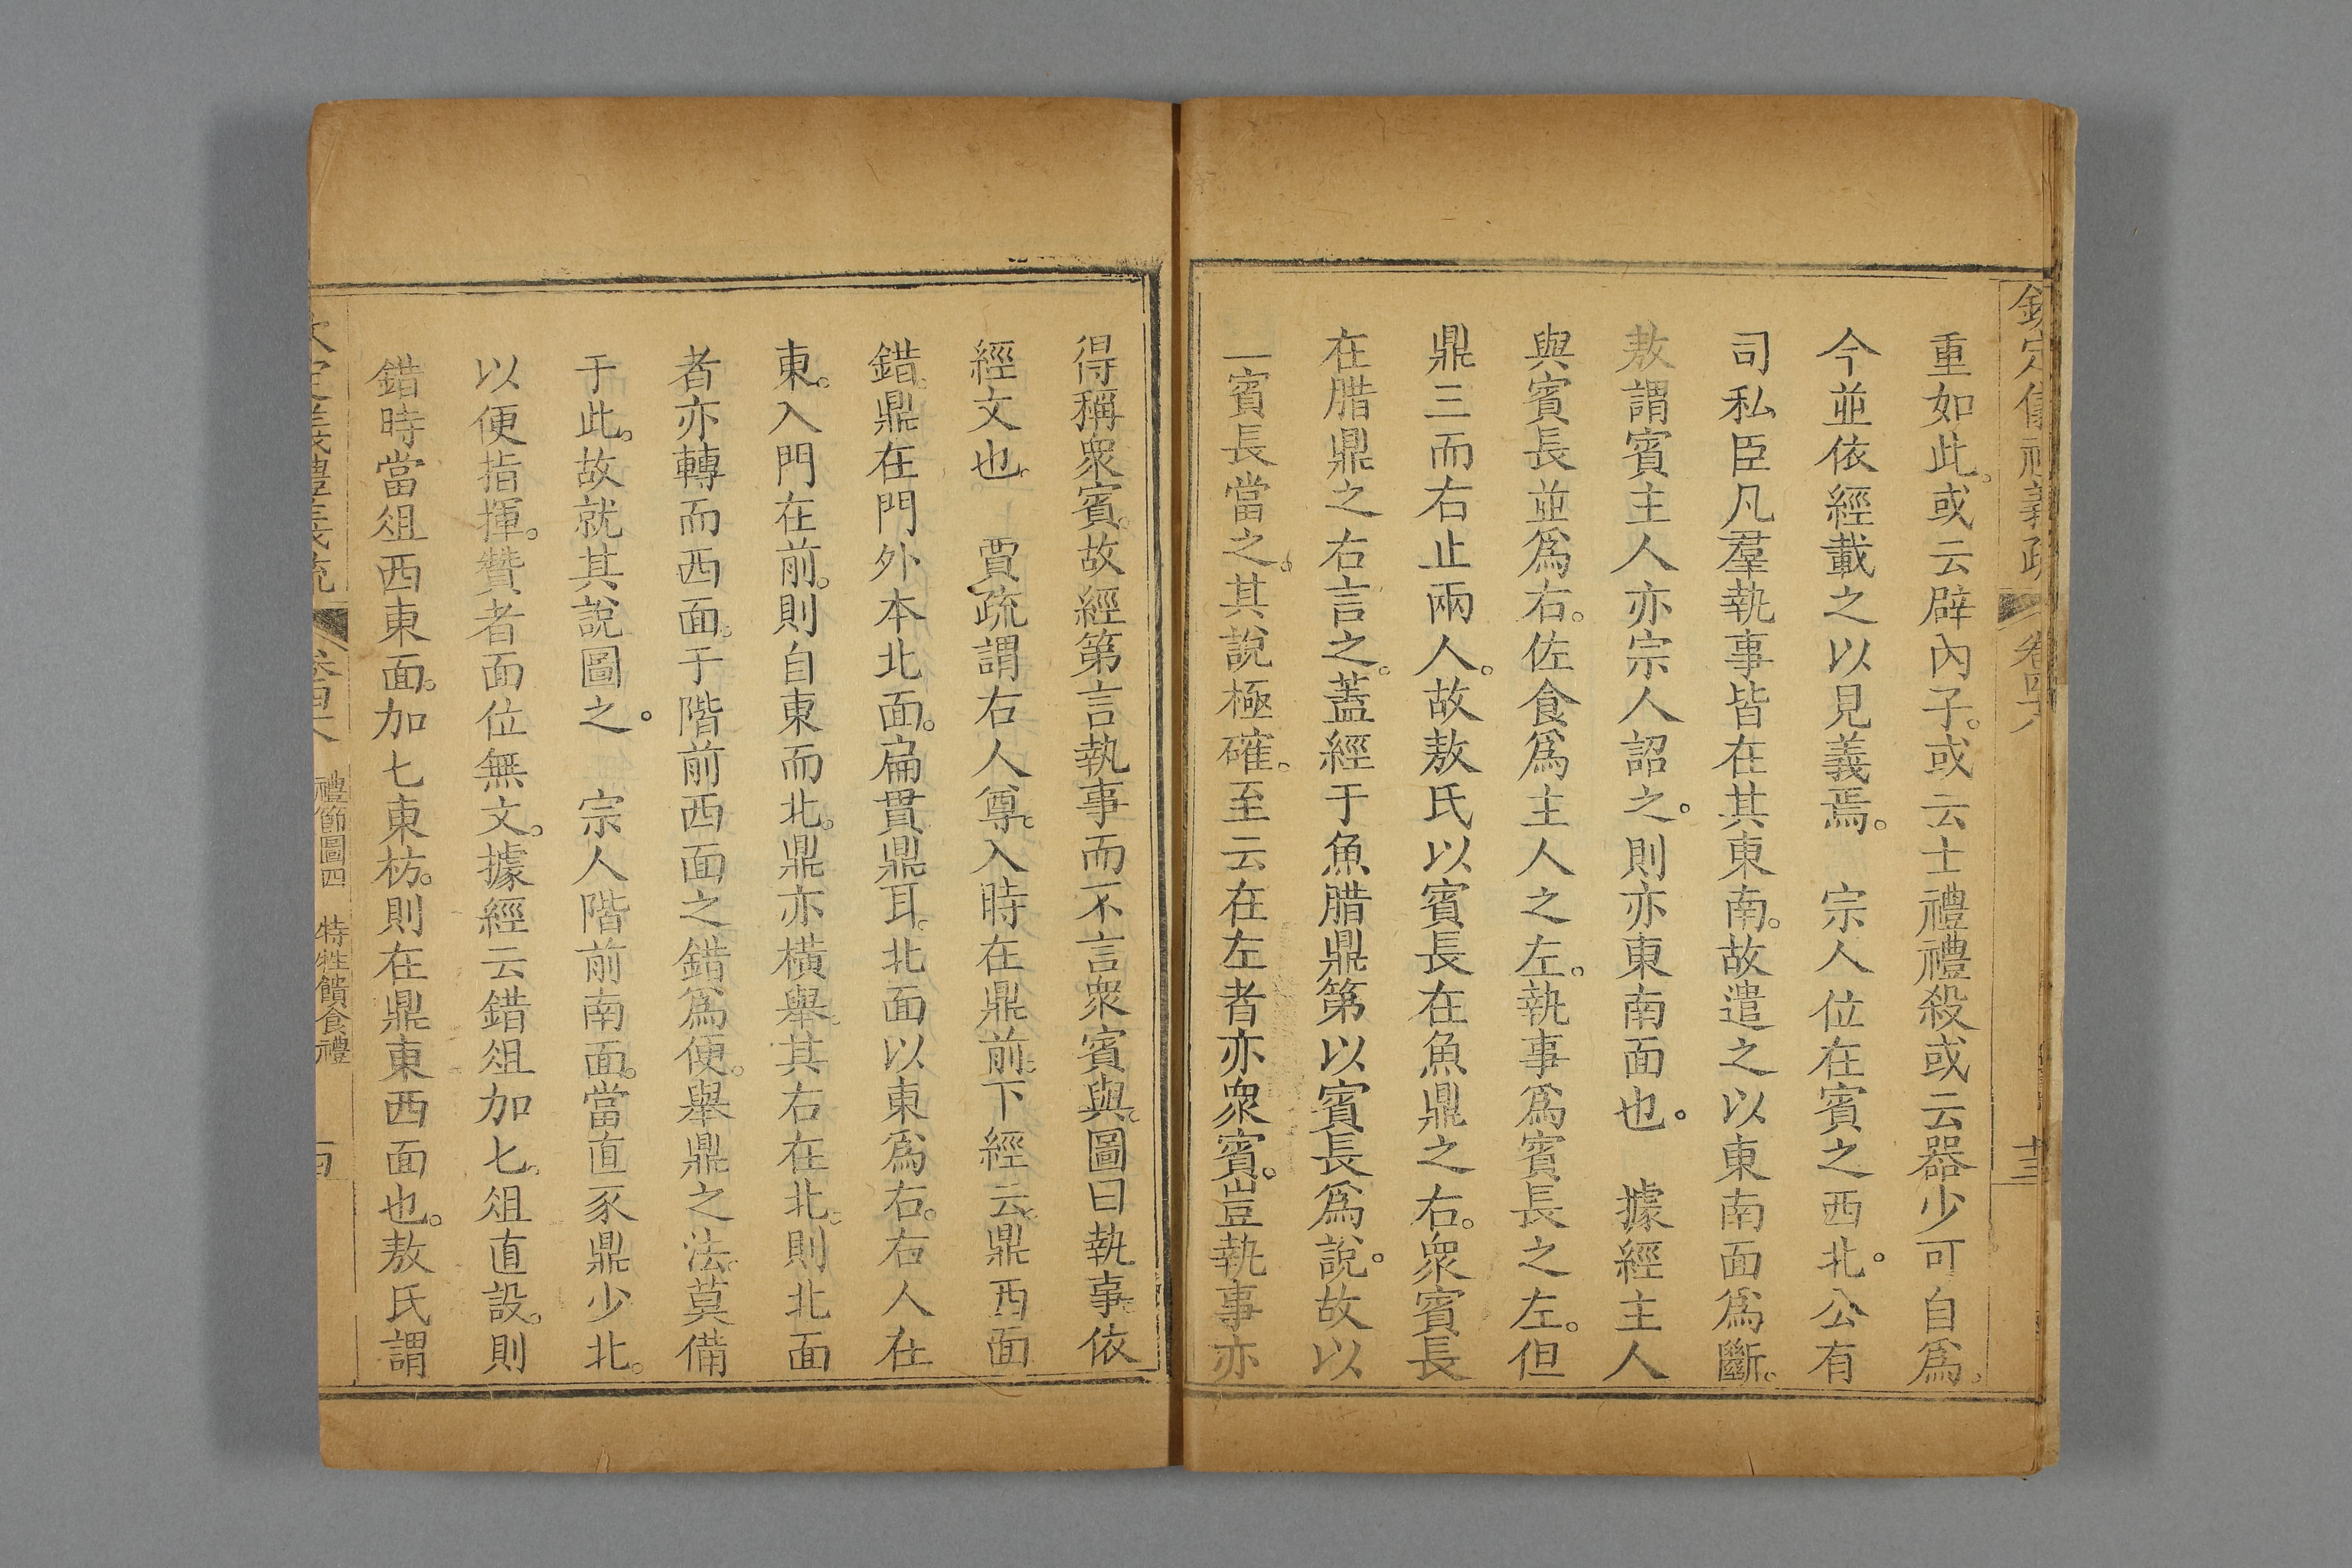 欽定儀禮義疏 卷四十八 十三
重如此。或云辟內子。或云士禮禮殺或云器少可自爲。
今並依經載之以見義焉。 宗人位在賓之西北。公有
司私臣凡羣執事皆在其東南。故遣之以東南面爲斷。
敖謂賓主人亦宗人詔之。則亦東南面也。 據經主人
與賓長並爲右。佐食爲主人之左。執事爲賓長之左。但
鼎三而右止兩人。故敖氏以賓長在魚鼎之右。衆賓長
在腊鼎之右言之。蓋經于魚腊鼎第以賓長爲說。故以
一賓長當之。其說極確。至云在左者亦衆賓。豈執事亦
得稱衆賓。故經第言執事而不言衆賓與。圖曰執事。依
經文也。 賈疏謂右人尊。入時在鼎前。下經云。鼎西面
錯。鼎在門外本北面。扃貫鼎耳。北面以東爲右。右人在
東。入門在前。則自東而北。鼎亦橫舉。其右在北。則北面
者亦轉而西面。于階前西面之錯爲便。舉鼎之法。莫備
于此。故就其說圖之。 宗人階前南面。當直豕鼎少北。
以便指揮。贊者面位無文。據經云錯俎加匕。俎直設。則
錯時當俎西東面。加匕東枋。則在鼎東西面也。敖氏謂
欽定儀禮義疏 卷四十八 禮節圖四 特牲饋食禮